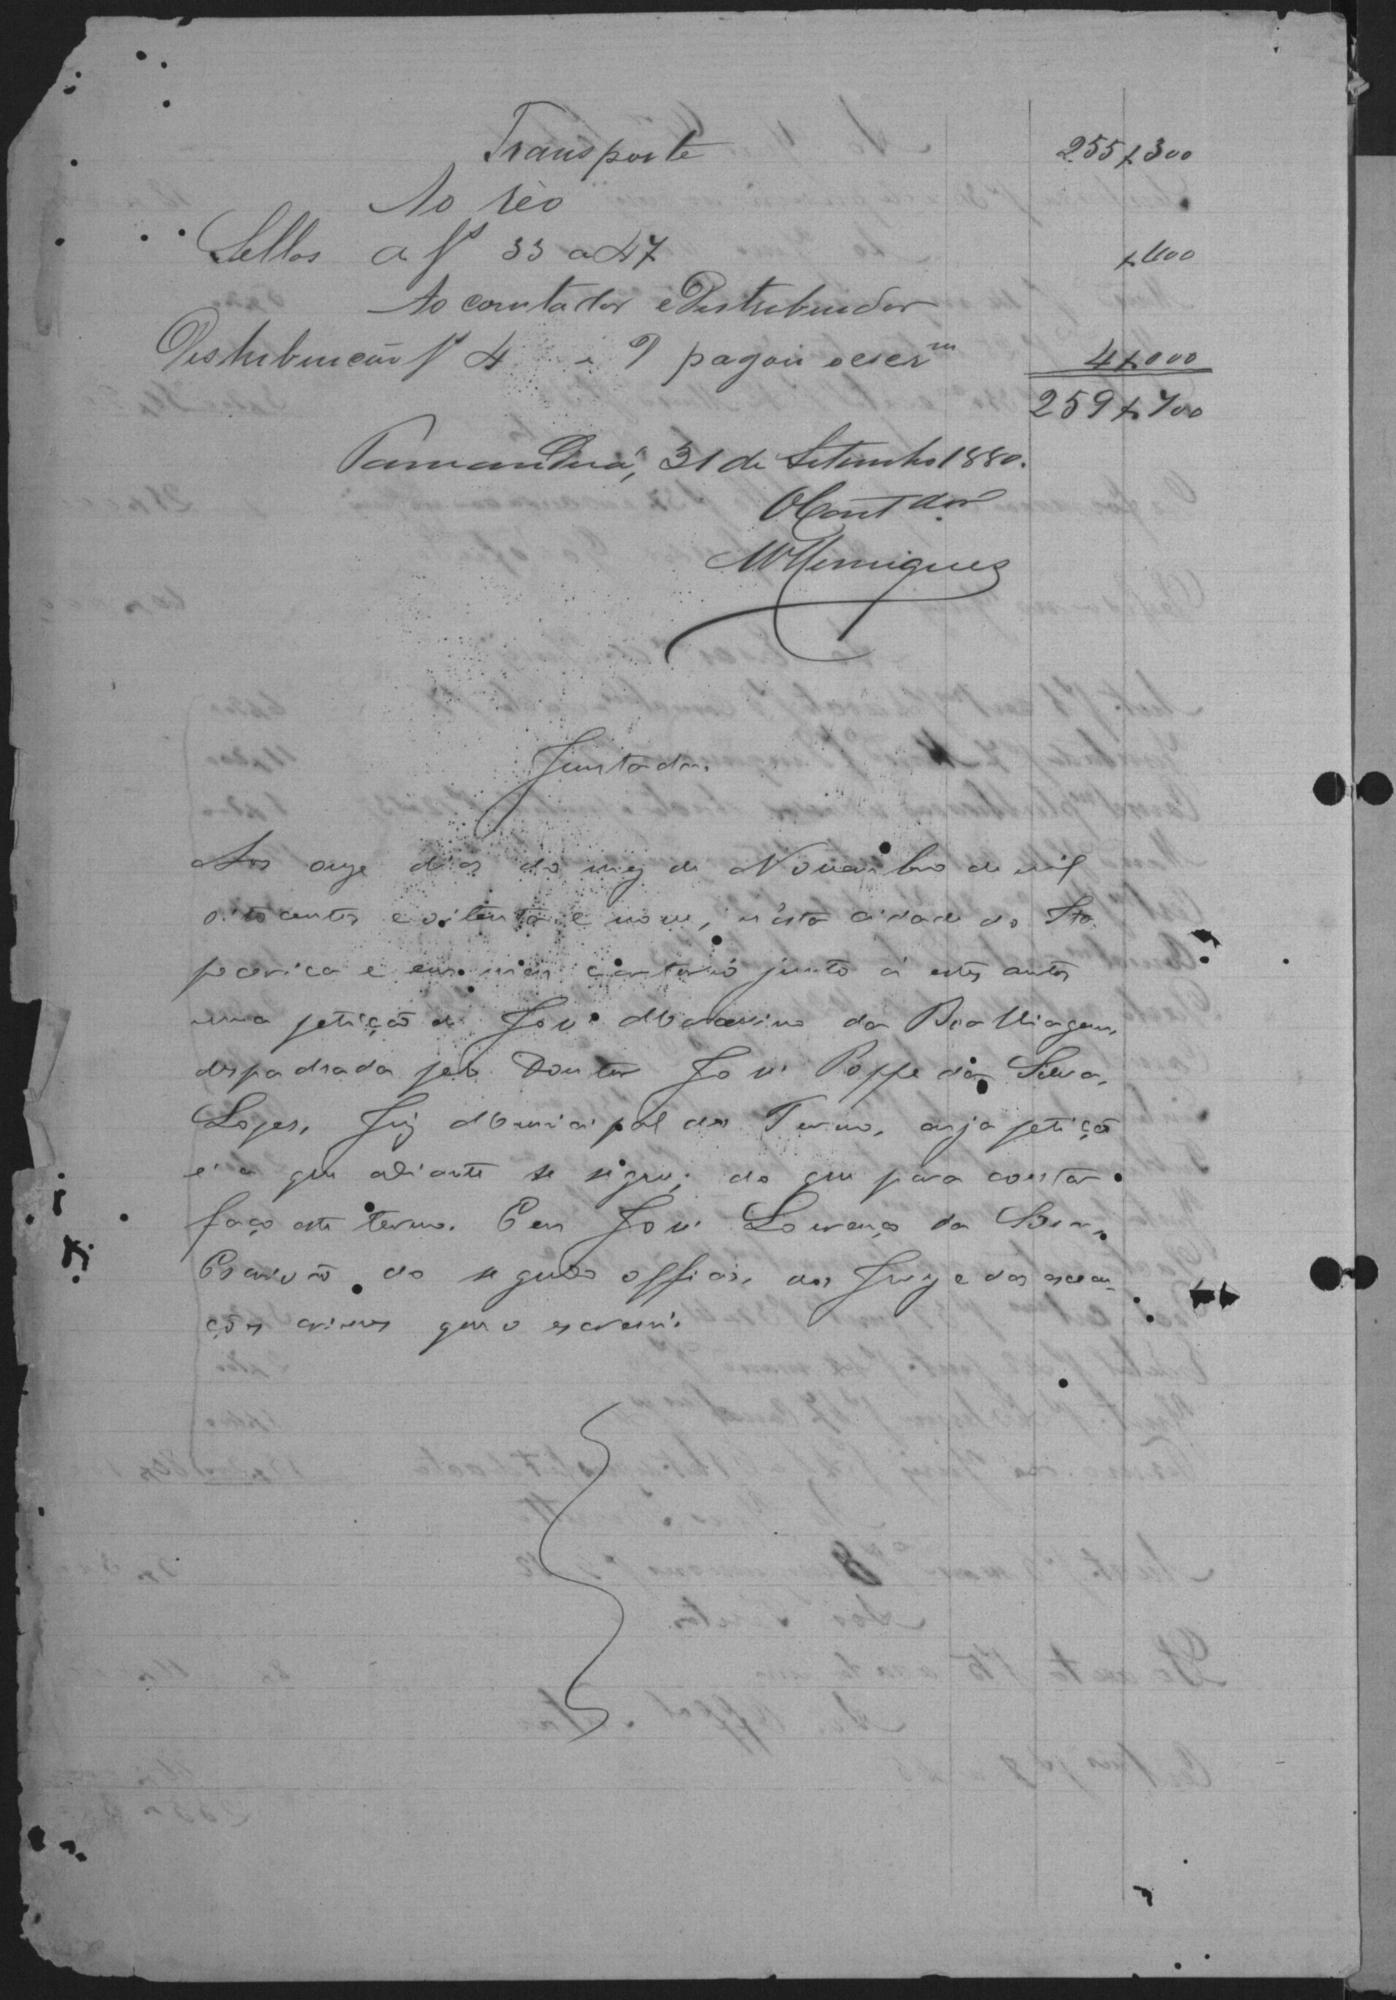 Transporte 255$300
Ao réo
Sellos a fs 33 a 47 $400
Ao contador e Distribuidor
Distribuição fs 4 e P pagou o escrm 4$000
259$700
Tamanduá, 31 de Setembro 1880.
O Contdor
MHenriques
Juntada.
Aos onze dias do mez de Novembro de mil
oitocentos e oitenta e nove, n'esta cidade do Ita
pecerica e em meu cartorio junto á estes autos
uma petição de José Marcelino da Boa Viagem,
despachada pelo Doutor José Poppe da Silva
Lopes, Juiz Municipal do Termo, cuja petição
é a que adiante se segue; do que para constar
faço este termo. Eu José Lourenço da
Escrivão do segundo officio, do Jury e das execu
ções crimes que o escrevi.